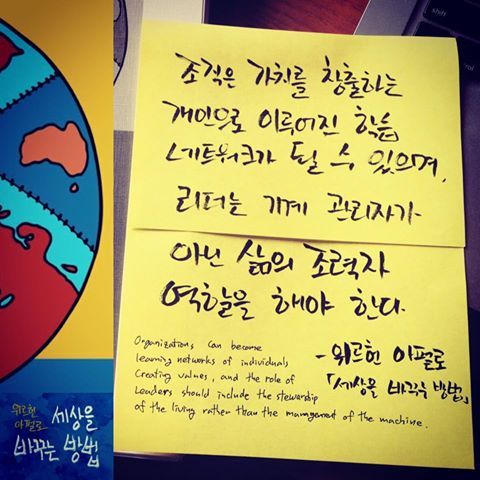 조직은 가치를 창출하는
개인으로 이루어진 학습
네트워크가 될 수 있으며,
리더는 기계 관리자가
아닌 삶의 조력자
역할을 해야 한다.
- 위르헌 아펄로
「세상을 바꾸는 방법」
Organizations can become
learning networks of individuals
Creating values, and the role of
Leaders should include the stewarship
of the living rather than the management of the machine.
위르헌
아펄로
세상을
바꾸는 방법
shift